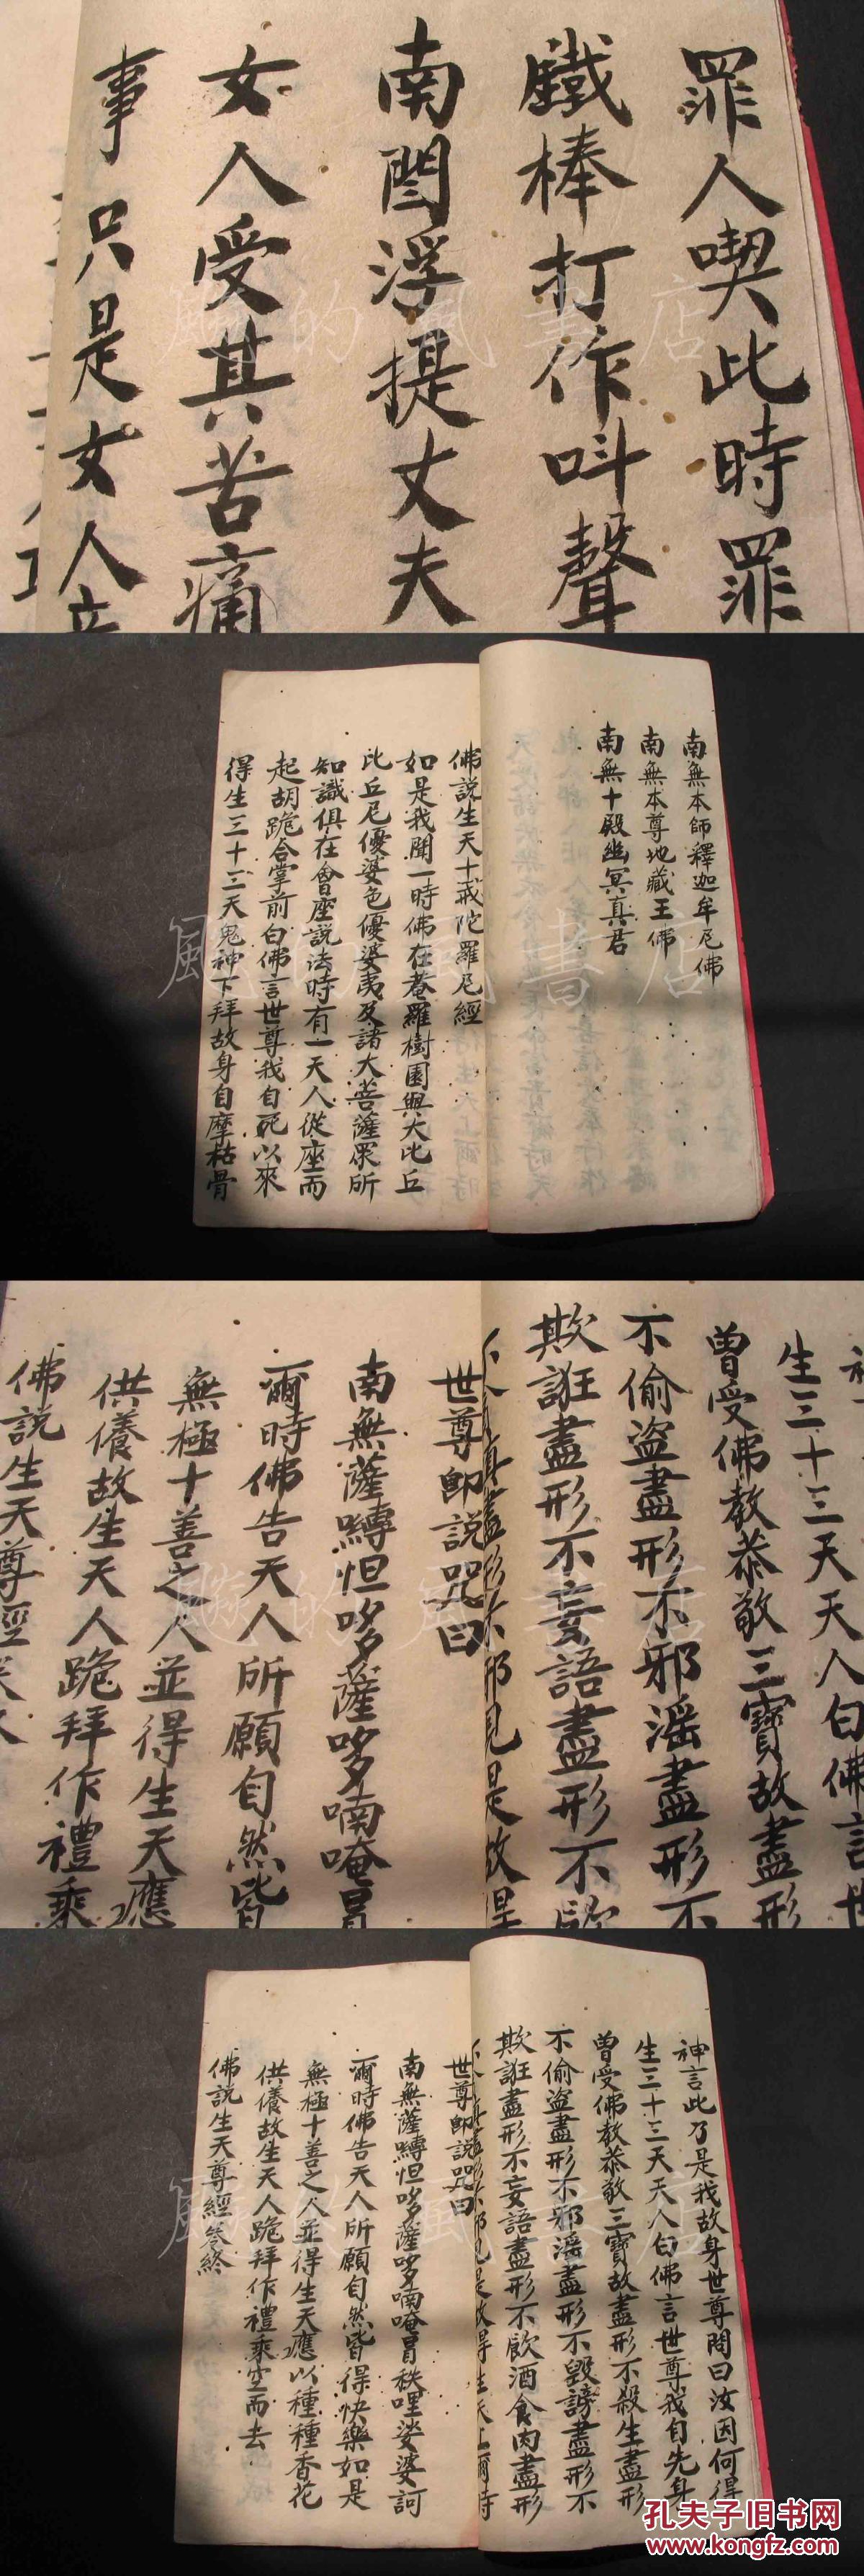 罪人喫此時罪
鐵棒打作呌聲
南閻浮提丈夫
女人受其苦痛
事只是女人產
南無本師釋迦牟尼佛
南無本尊地藏王佛
南無十殿幽冥真君
佛說生天十戒陀羅尼經
如是我聞一時佛在菴羅樹園與大比丘
比丘尼優婆色優婆夷及諸大菩薩眾所
知識俱在會座說法時有一天人從座而
起胡跪合掌前白佛言世尊我自死以來
得生三十三天鬼神下拜故身自摩枯骨
生三十三天天人白佛言世
曾受佛教恭敬三寶故盡形
不偷盜盡形不邪滛盡形不
欺誑盡形不妄語盡形不飲
邪見是故得
世尊卽說咒曰
南無薩縛怛哆薩哆喃唵冒
爾時佛告天人所願自然皆
無極十善之人並得生天應
供養故生天人跪拜作禮乘
佛說生天尊經
神言此乃是我故身世尊問曰汝因何得
生三十三天天人白佛言世尊我自先身
曾受佛教恭敬三寶故盡形不殺生盡形
不偷盜盡形不邪滛盡形不毀謗盡形不
欺誑盡形不妄語盡形不飲酒食肉盡形
邪見是故得生天上爾時
世尊卽說咒曰
南無薩縛怛哆薩哆喃唵冒秩哩娑婆訶
爾時佛告天人所願自然皆得快樂如是
無極十善之人並得生天應以種種香花
供養故生天人跪拜作禮乘空而去
佛說生天尊經卷終
飈的風書店
孔夫子旧书网
www.kongfz.com